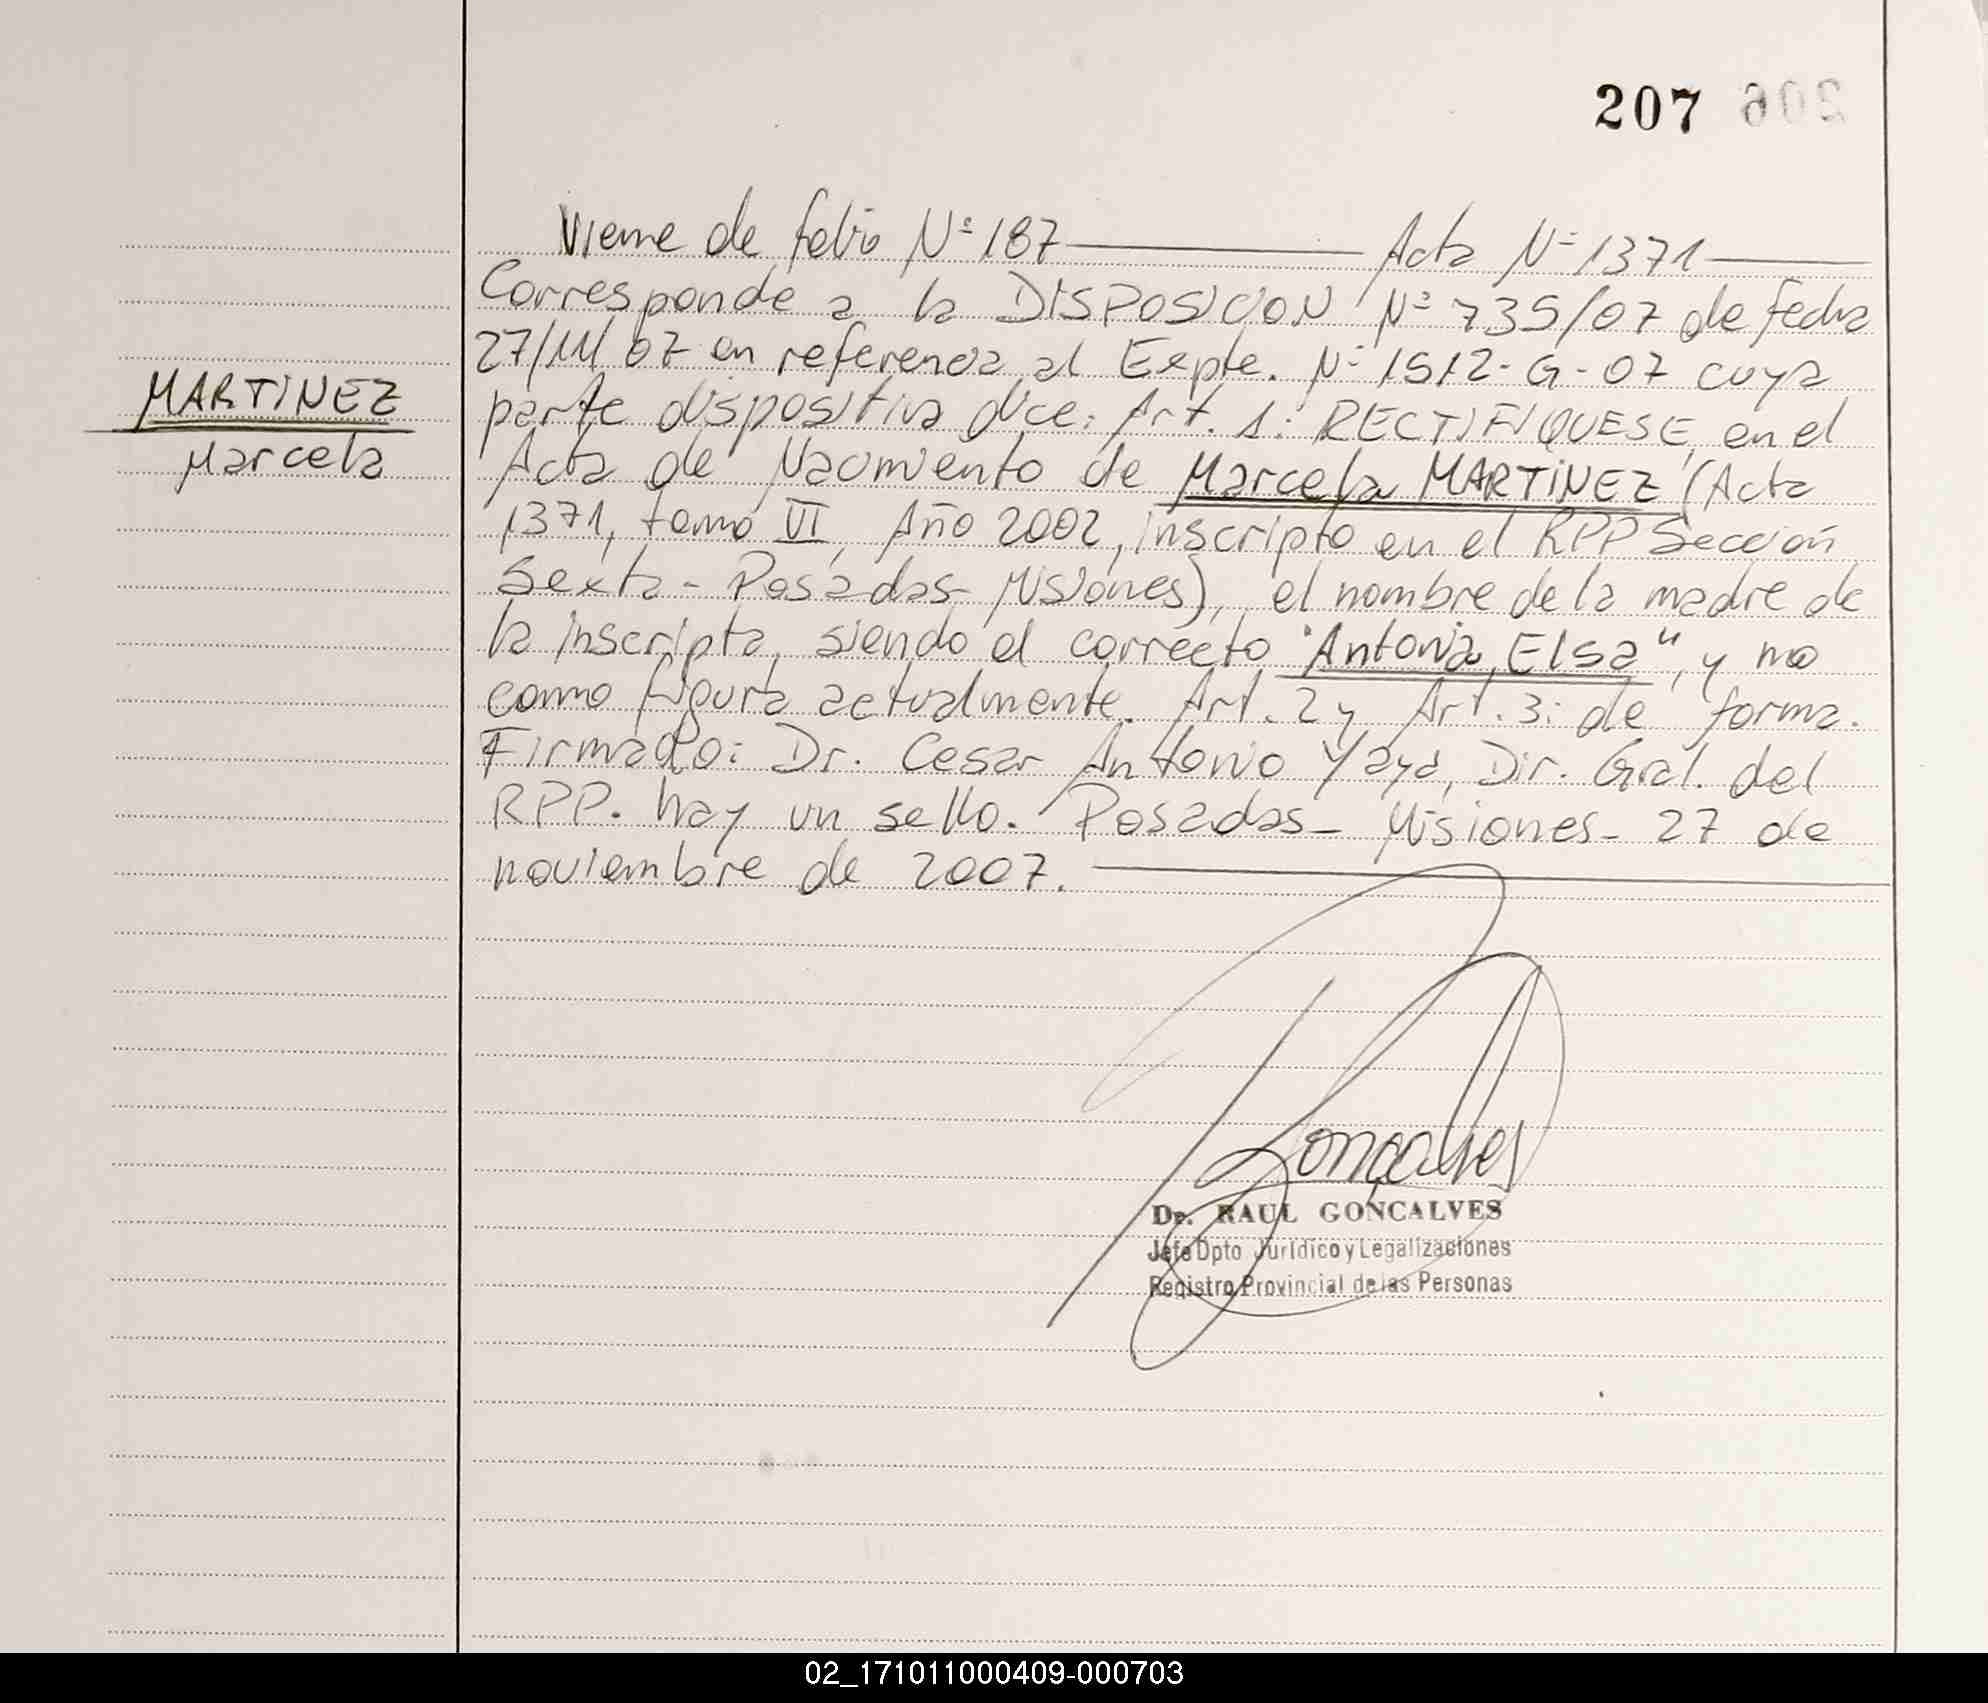 207 206
Viene de folio Nº 187 Acta Nº 1371
Corresponde a la DISPOSICION Nº 735/07 de fecha
27/11/07 en referencia al Expte. Nº 1512-G-07 cuya
MARTINEZ
parte dispositiva dice: Art. 1: RECTIFIQUESE, en el
Marcela
Acta de Nacimiento de Marcela MARTINEZ (Acta
1371, tomo VI, Año 2002, inscripto en el RPP Sección
Sexta - Posadas - Misiones), el nombre de la madre de
la inscripta, siendo el correcto "Antonia, Elsa", y no
como figura actualmente. Art. 2 y Art. 3: de forma.
Firmado: Dr. Cesar Antonio Yaya, Dir. Gral. del
RPP. hay un sello. Posadas - Misiones - 27 de
noviembre de 2007.
Goncalves
Dr. RAUL GONCALVES
Jefe Dpto Jurídico y Legalizaciones
Registro Provincial de las Personas
02_171011000409-000703